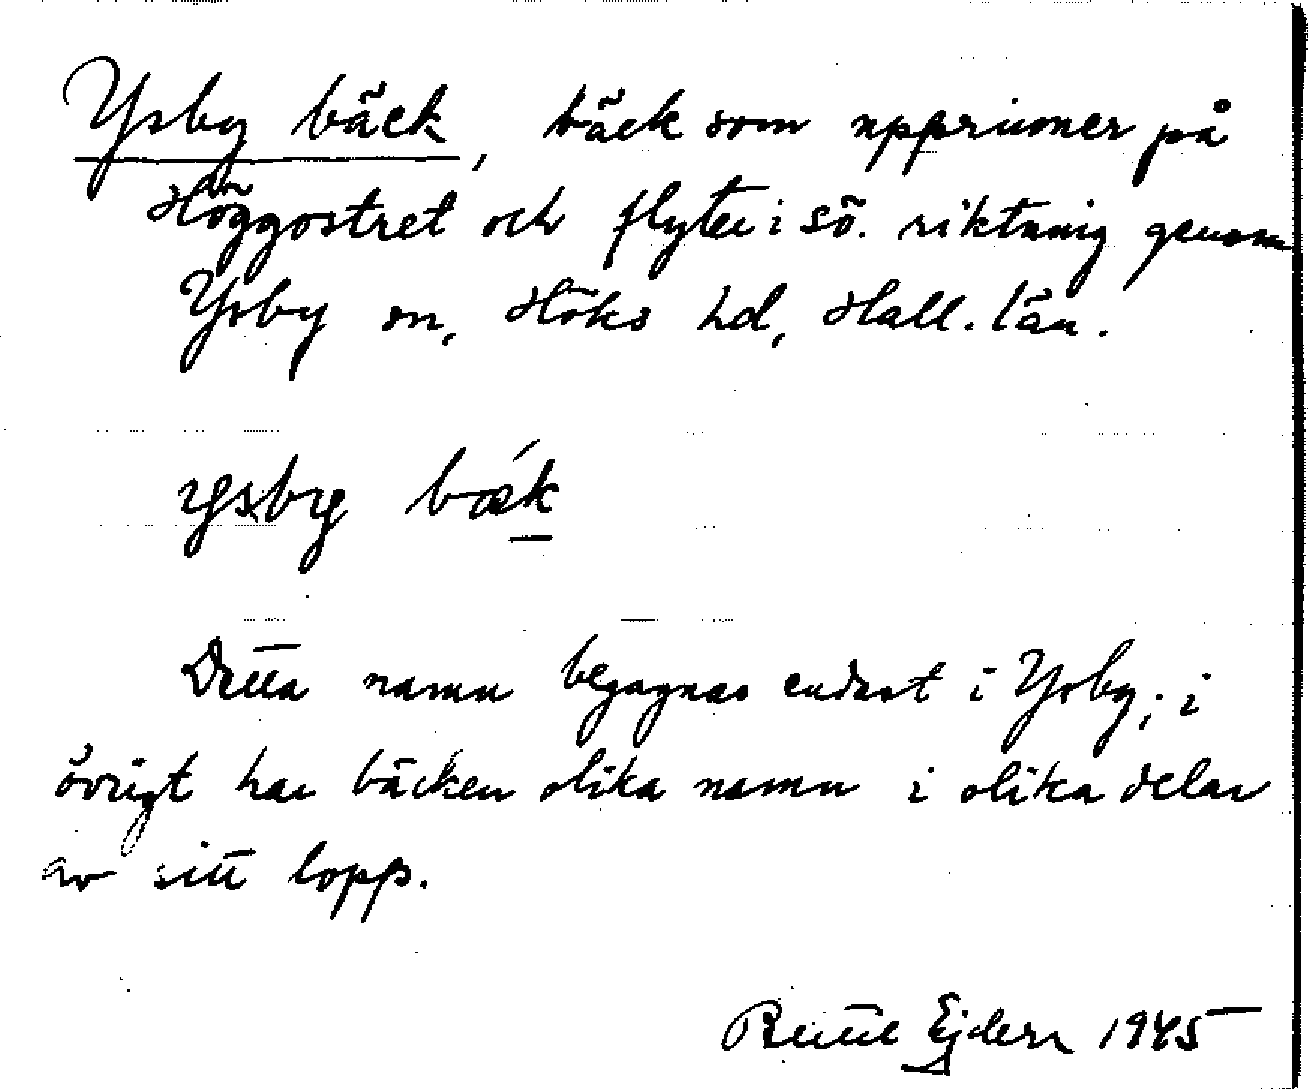 Ysby bäck, bäck som upprinner på
Höggostret och flyter i sö. riktning genom
Ysby sn, Höks hd, Hall. län.
ysby bæk
Detta namn begagnas endast i Ysby; i
övrigt har bäcken olika namn i olika delar
av sitt lopp.
Bertil Ejder 1945